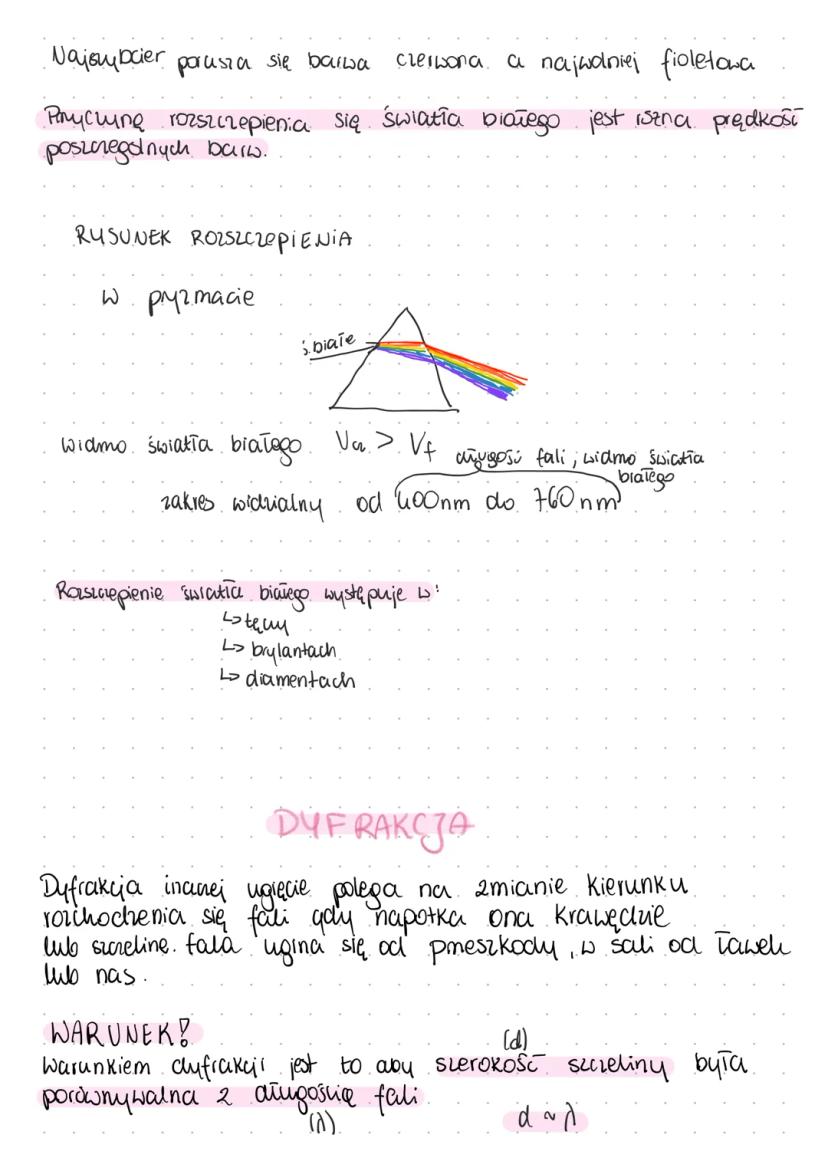 Najszybciej porusza się barwa czerwona a najwolniej fioletowa
Przyczyną rozszczepienia się światła białego jest różna prędkość
poszczególnych barw.
RYSUNEK ROZSZCZEPIENIA
w pryzmacie
ś. białe
widmo światła białego Vcz > Vf
długość fali, widmo światła
białego
zakres widzialny od 400nm do 760nm
Rozszczepienie światła białego występuje w:
↳ tęczy
↳ brylantach
↳ diamentach
DYFRAKCJA
Dyfrakcja inaczej ugięcie polega na zmianie kierunku
rozchochenia się fali gdy napotka ona krawędzie
lub szczelinę. fala ugina się od przeszkody, w sali od ławek
lub nas.
WARUNEK!
(d)
Warunkiem dyfrakcji jest to aby szerokość szczeliny była
porównywalna z długością fali
(λ)
d ~ λ